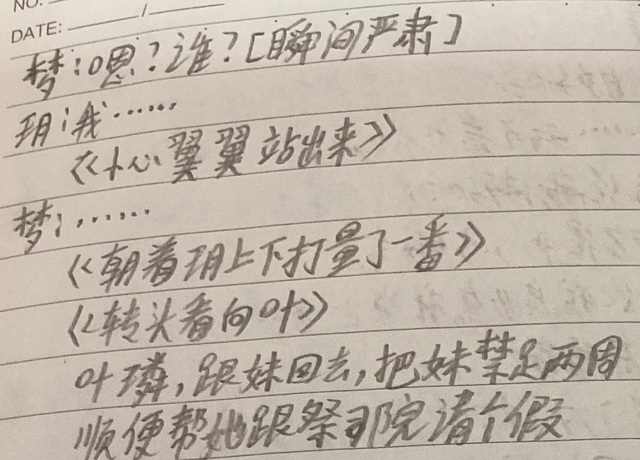 NO.
DATE: /
梦:嗯?谁?[瞬间严肃]
玥:我……
《小心翼翼站出来》
梦:……
《朝着玥上下打量了一番》
《转头看向叶》
叶璘,跟妹回去,把妹禁足两周
顺便帮她跟祭司院请个假